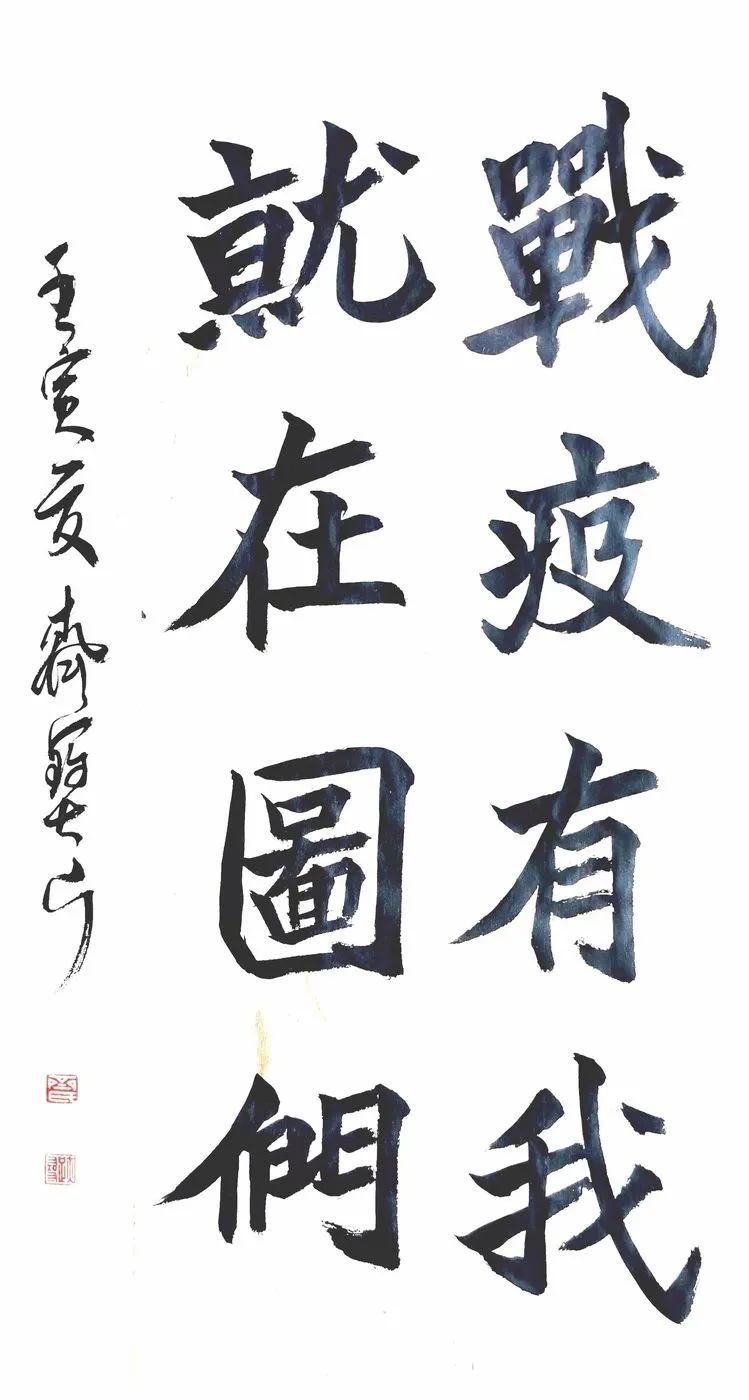 戰疫有我
就在圖們
壬寅夏